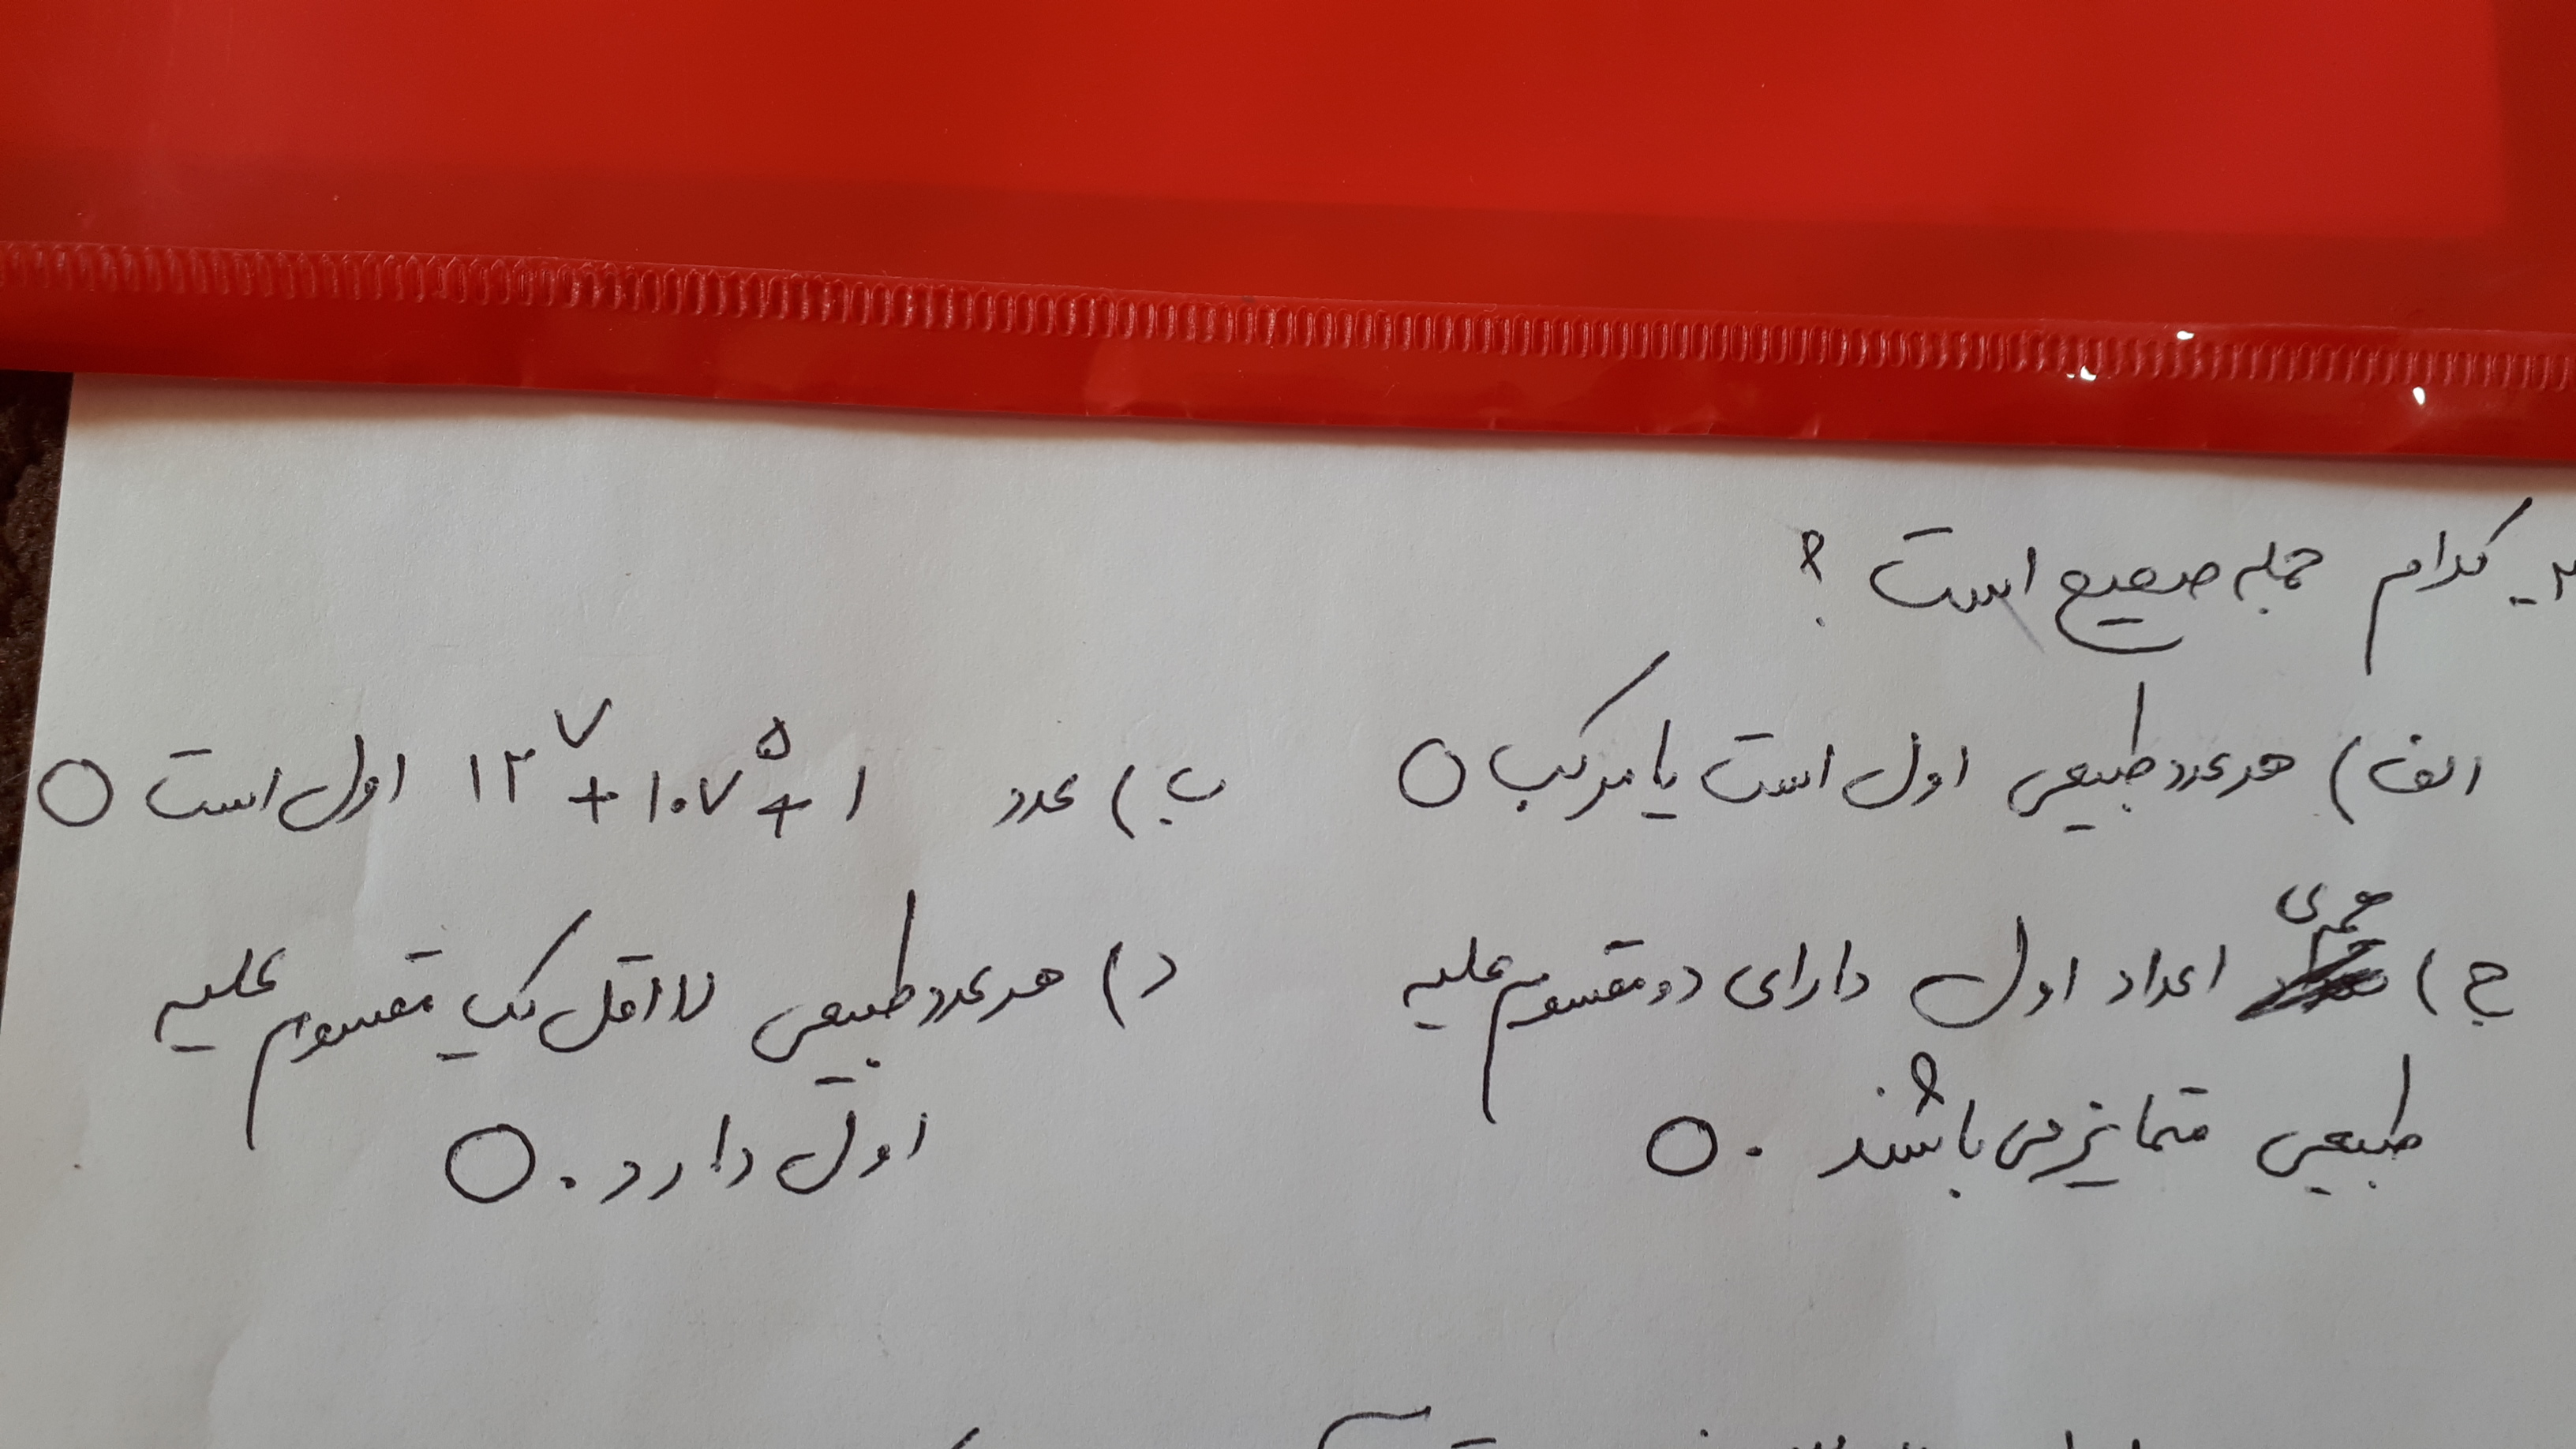 کدام جمله صحیح است؟
الف) هر عدد طبیعی اول است یا مرکب
ب) عدد ۱۲^۷ + ۱۰۷^۵ + ۱ اول است
ج) همه‌ی اعداد اول دارای دو مقسوم علیه
طبیعی متمایز می باشند.
د) هر عدد طبیعی لااقل یک مقسوم علیه
اول دارد.